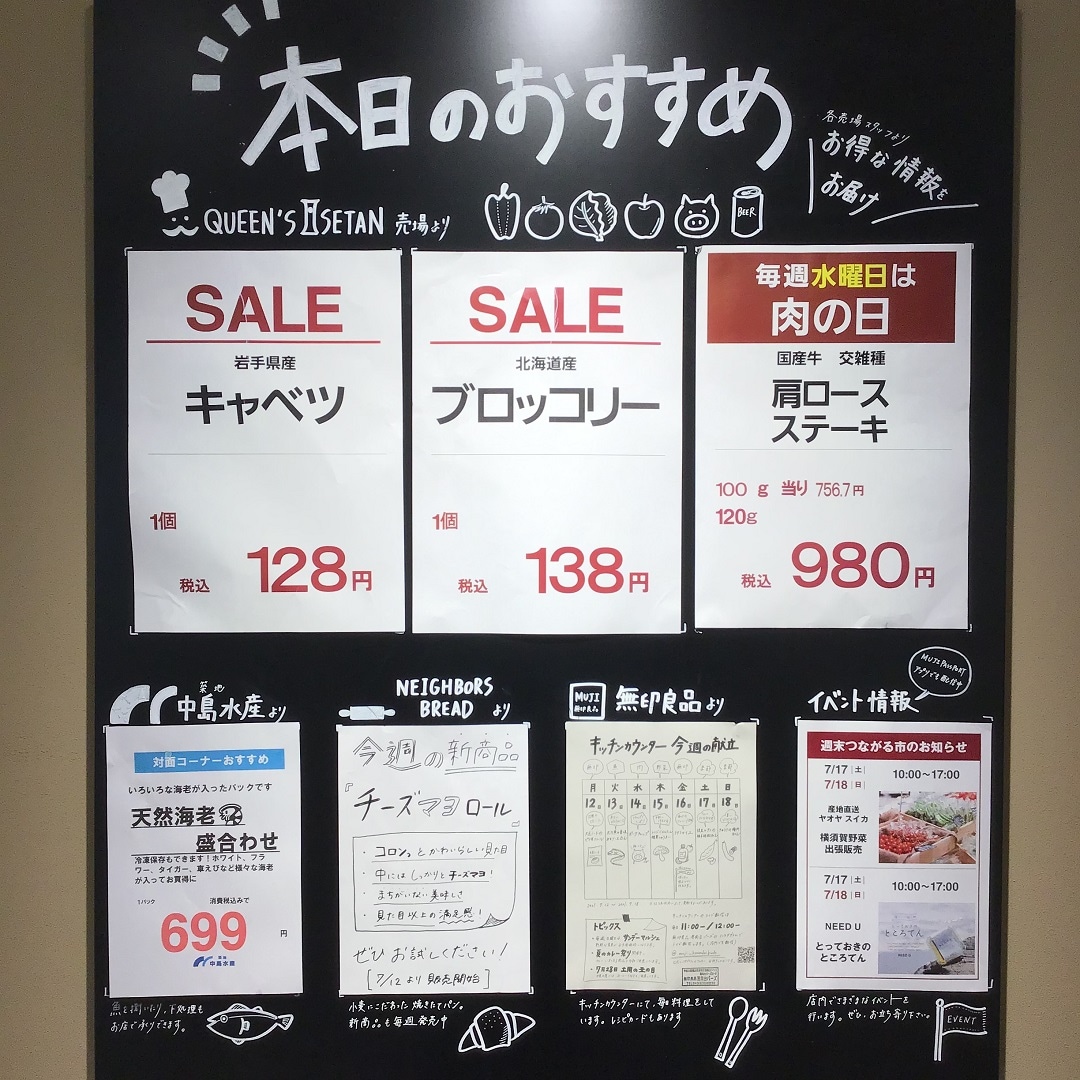 本日のおすすめ
各売場スタッフより
お得な情報を
お届け
QUEEN'S ISETAN 売場より
BEER
SALE
岩手県産
キャベツ
1個
税込 128円
SALE
北海道産
ブロッコリー
1個
税込 138円
毎週水曜日は
肉の日
国産牛 交雑種
肩ロース
ステーキ
100 g 当り 756.7円
120g
税込 980円
築地
中島水産より
対面コーナーおすすめ
いろいろな海老が入ったパックです
天然海老
盛合わせ
冷凍保存もできます！ホワイト、フラ
ワー、タイガー、車えびなど様々な海老
が入ってお買得に
1パック 消費税込みで
699円
築地
中島水産
魚を捌いたり、下処理も
お店で承りできます。
NEIGHBORS
BREAD より
今週の新商品
『チーズマヨロール』
・コロンっとかわいらしい見た目
・中にはしっかりとチーズマヨ！
・まちがいない美味しさ
・見た目以上の満足感！
ぜひお試しください！
[7/12より販売開始]
小麦にこだわった焼きたてパン。
新商品も毎週発売中
MUJI
無印良品
無印良品より
キッチンカウンター 今週の献立
月 火 水 木 金 土 日
12 13 14 15 16 17 18
トピックス
サンデーマルシェ
夏のカレー祭り
7月28日 土用の丑の日
11:00-/12:00-
キッチンカウンターにて、毎日料理をして
います。レシピカードもあります
イベント情報
MUJI PASSPORT
アプリでも配信中
週末つながる市のお知らせ
7/17｜土｜
7/18｜日｜
10:00〜17:00
産地直送
ヤオヤ スイカ
横須賀野菜
出張販売
7/17｜土｜
7/18｜日｜
10:00〜17:00
NEED U
とっておきの
ところてん
ところてん
店内でさまざまなイベントを
行います。ぜひ、お立ち寄り下さい。
EVENT